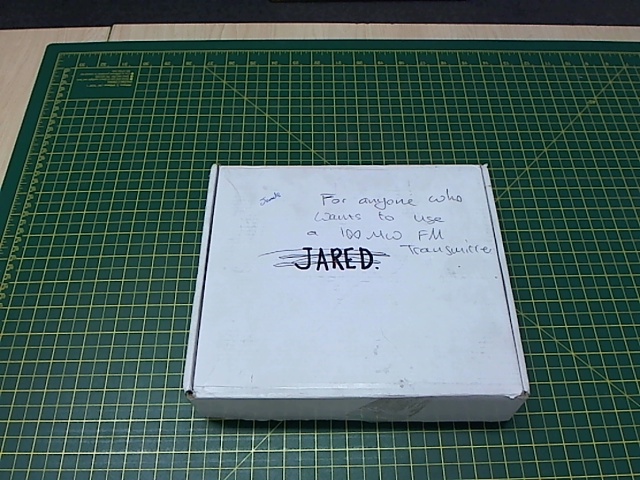 For anyone who
wants to use
a 100 MW FM
Transmitter
JARED.